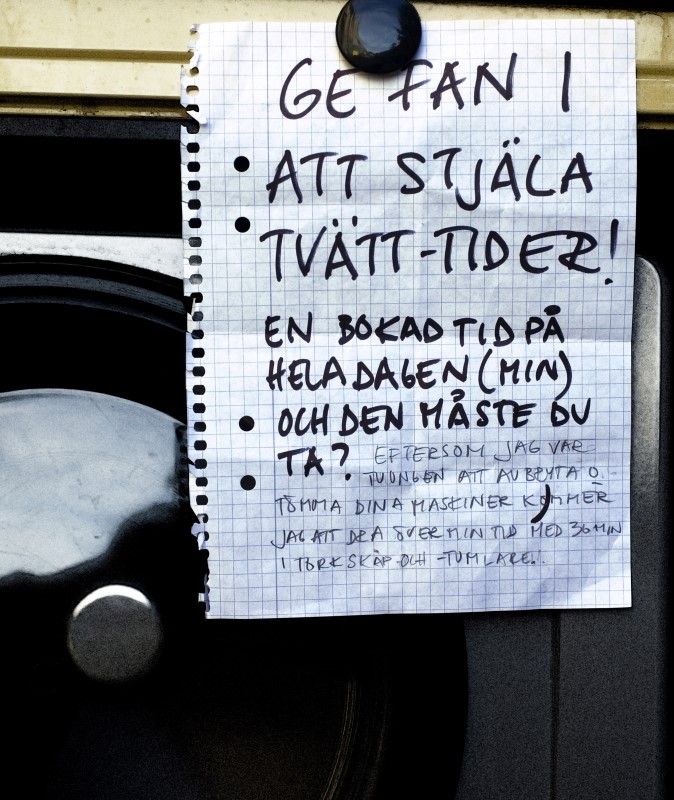 GE FAN I
ATT STJÄLA
TVÄTT-TIDER!
EN BOKAD TID PÅ
HELA DAGEN (MIN)
OCH DEN MÅSTE DU
TA? EFTERSOM JAG VAR
TVUNGEN ATT AVBRYTA O.
TÖMMA DINA MASKINER KOMMER
JAG ATT DRA ÖVER MIN TID MED 30 MIN
I TORKSKÅP OCH -TUMLARE!!